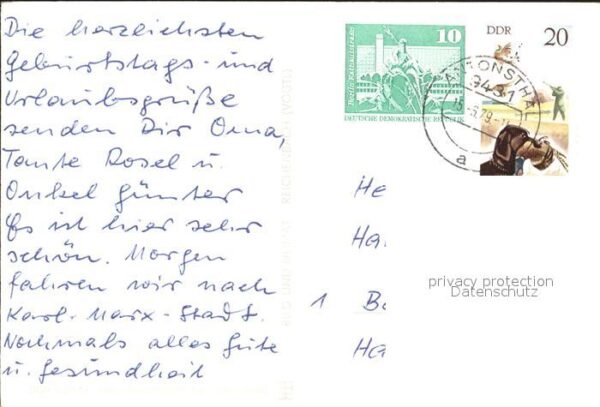 Die herzlichsten
Geburtstags- und
Urlaubsgrüße
senden Dir Oma,
Tante Rosel u.
Onkel Günter
Es ist hier sehr
schön. Morgen
fahren wir nach
Karl-Marx-Stadt.
Nochmals alles Gute
u. Gesundheit
10
DEUTSCHE DEMOKRATISCHE REPUBLIK
DDR 20
9431
a
He
Ha
1 B
Ha
privacy protection
Datenschutz